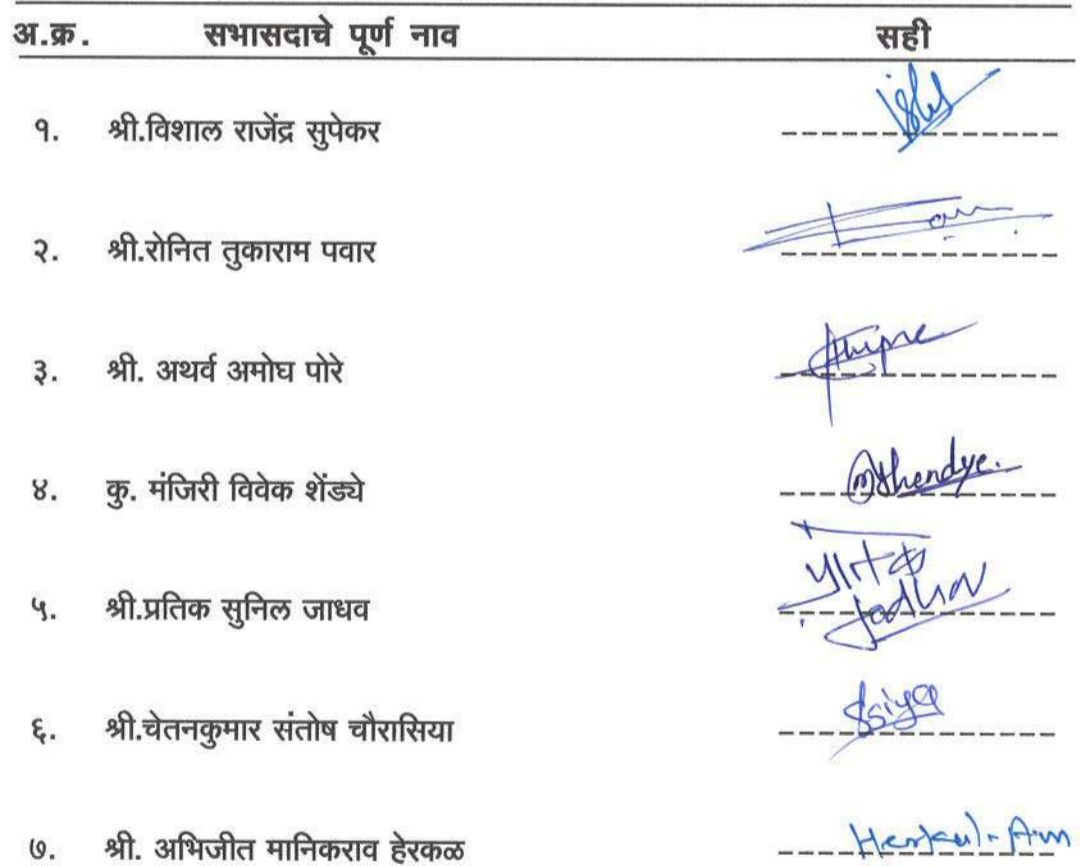 अ.क्र. सभासदाचे पूर्ण नाव सही
१. श्री.विशाल राजेंद्र सुपेकर
२. श्री.रोनित तुकाराम पवार
३. श्री. अथर्व अमोघ पोरे
४. कु. मंजिरी विवेक शेंड्ये MShendye.
५. श्री.प्रतिक सुनिल जाधव
६. श्री.चेतनकुमार संतोष चौरासिया
७. श्री. अभिजीत मानिकराव हेरकळ